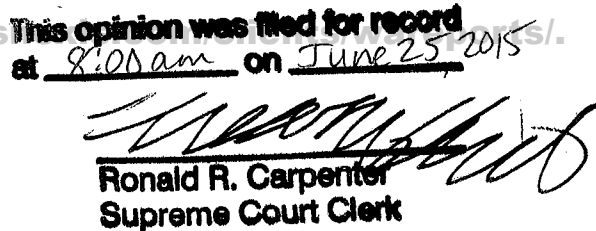 This opinion was filed for record
at 8:00am on June 25, 2015
Ronald R. Carpenter
Supreme Court Clerk